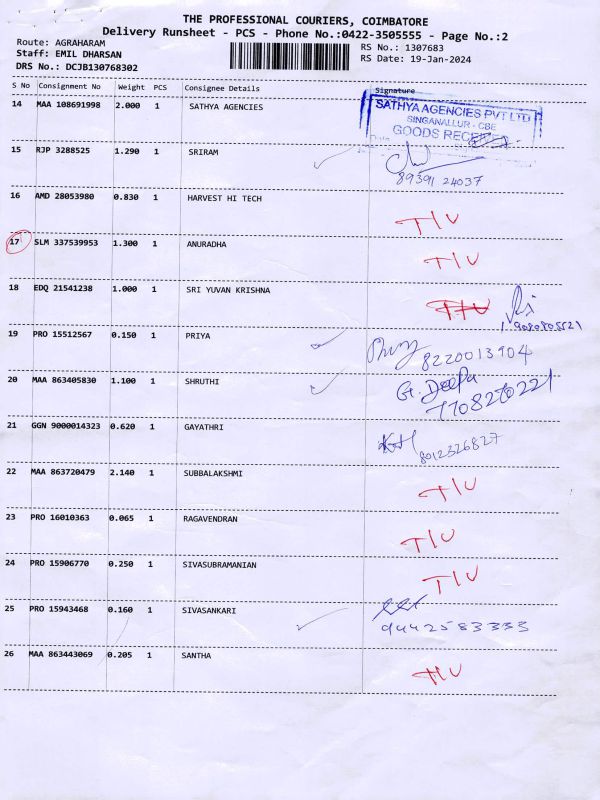 THE PROFESSIONAL COURIERS, COIMBATORE
Delivery Runsheet - PCS - Phone No.:0422-3505555 - Page No.:2
Route: AGRAHARAM RS No.: 1307683
Staff: EMIL DHARSAN RS Date: 19-Jan-2024
DRS No.: DCJB130768302
S No Consignment No Weight PCS Consignee Details Signature
14 MAA 108691998 2.000 1 SATHYA AGENCIES
SATHYA AGENCIES PVT LTD
SINGANALLUR - CBE
GOODS RECEIVED
15 RJP 3288525 1.290 1 SRIRAM
89391 24037
16 AMD 28053980 0.830 1 HARVEST HI TECH T/U
17 SLM 337539953 1.300 1 ANURADHA T/U
18 EDQ 21541238 1.000 1 SRI YUVAN KRISHNA T/U
19 PRO 15512567 0.150 1 PRIYA 8220013904
20 MAA 863405830 1.100 1 SHRUTHI G. Deepa
7708270221
21 GGN 9000014323 0.620 1 GAYATHRI 8012326827
22 MAA 863720479 2.140 1 SUBBALAKSHMI T/U
23 PRO 16010363 0.065 1 RAGAVENDRAN T/U
24 PRO 15906770 0.250 1 SIVASUBRAMANIAN T/U
25 PRO 15943468 0.160 1 SIVASANKARI
9442583333
26 MAA 863443069 0.205 1 SANTHA T/U